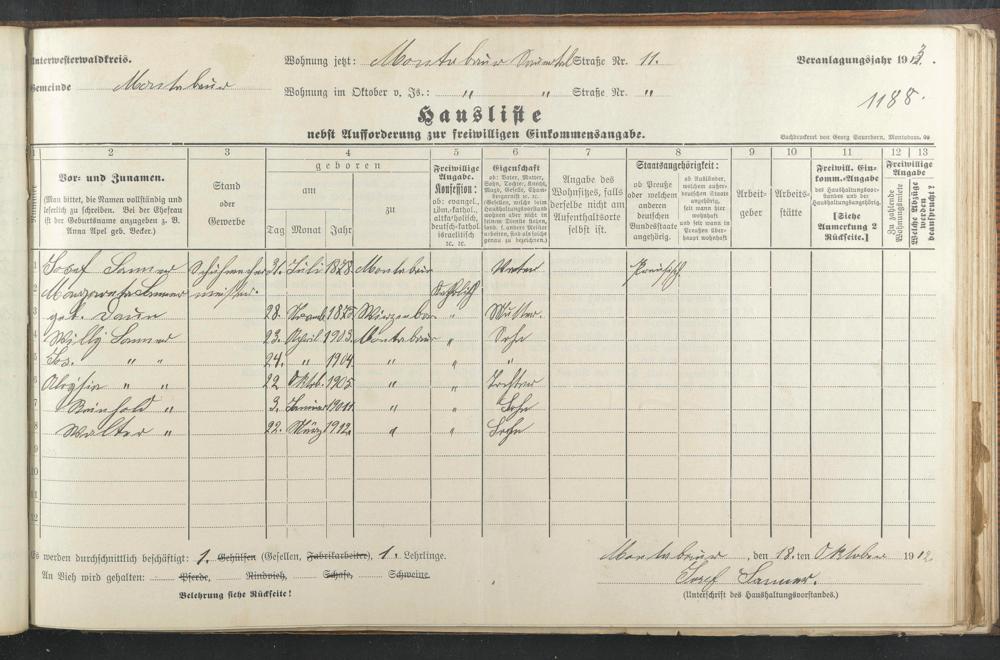 Unterwesterwaldkreis.
Wohnung jetzt: Montabaur Straße Nr. 11.
Veranlagungsjahr 1913.
Gemeinde Montabaur
Wohnung im Oktober v. Js.: " " Straße Nr. "
1188.
Hausliste
nebst Aufforderung zur freiwilligen Einkommensangabe.
Buchdruckerei von Georg Sauerborn, Montabaur.
1 2 3 4 5 6 7 8 9 10 11 12 13
Nummer
Vor- und Zunamen.
(Man bittet, die Namen vollständig und leserlich zu schreiben. Bei der Ehefrau ist der Geburtsname anzugeben z. B. Anna Apel geb. Becker.)
Stand oder Gewerbe
geboren
am
Tag Monat Jahr
zu
Freiwillige Angabe. Konfession:
ob: evangel., röm.-kathol., altkatholisch, deutsch-kathol. israelitisch ec. ec.
Eigenschaft
ob: Vater, Mutter, Sohn, Tochter, Knecht, Magd, Geselle,
Angabe des Wohnsitzes, falls derselbe nicht am Aufenthaltsorte selbst ist.
Staatsangehörigkeit:
ob Preuße oder welchem anderen deutschen Bundesstaate angehörig.
ob Ausländer, welchem außerdeutschen Staate angehörig, seit wann hier wohnhaft und seit wann in Preußen überhaupt wohnhaft
Arbeitgeber
Arbeitsstätte
Freiwill. Einkomm.-Angabe
des Haushaltungsvorstandes und der Haushaltungsangehörig.
[Siehe Anmerkung 2 Rückseite.]
Freiwillige Angabe
Zu zahlende Wohnungsmiete
Welche Abzüge werden beansprucht?
1 Josef Sanner Schuhmacher 21. Juli 1878 Montabaur Vater Preußisch
2 Margareta Sanner meister. Katholisch
3 geb. Daun 28. 1875 " Mutter.
4 Willy Sanner 23. April 1903 Montabaur " Sohn
5 Jos. " " 24. " 1904 " "
6 " " 22 Oktob. 1905 " " Tochter
7 Reinhold " 3. Januar 1911 " " Sohn
8 Walter " 22. März 1912 " " Sohn
9
10
11
12
Es werden durchschnittlich beschäftigt: 1. Gehülfen (Gesellen, Fabrikarbeiter), 1. Lehrlinge.
Montabaur, den 18. ten Oktober 1912
An Vieh wird gehalten: Pferde, Rindvieh, Schafe, Schweine.
Josef Sanner.
Belehrung siehe Rückseite!
(Unterschrift des Haushaltungsvorstandes.)